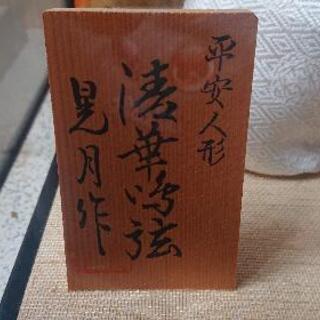 平安人形
清華鳴弦
晃月作